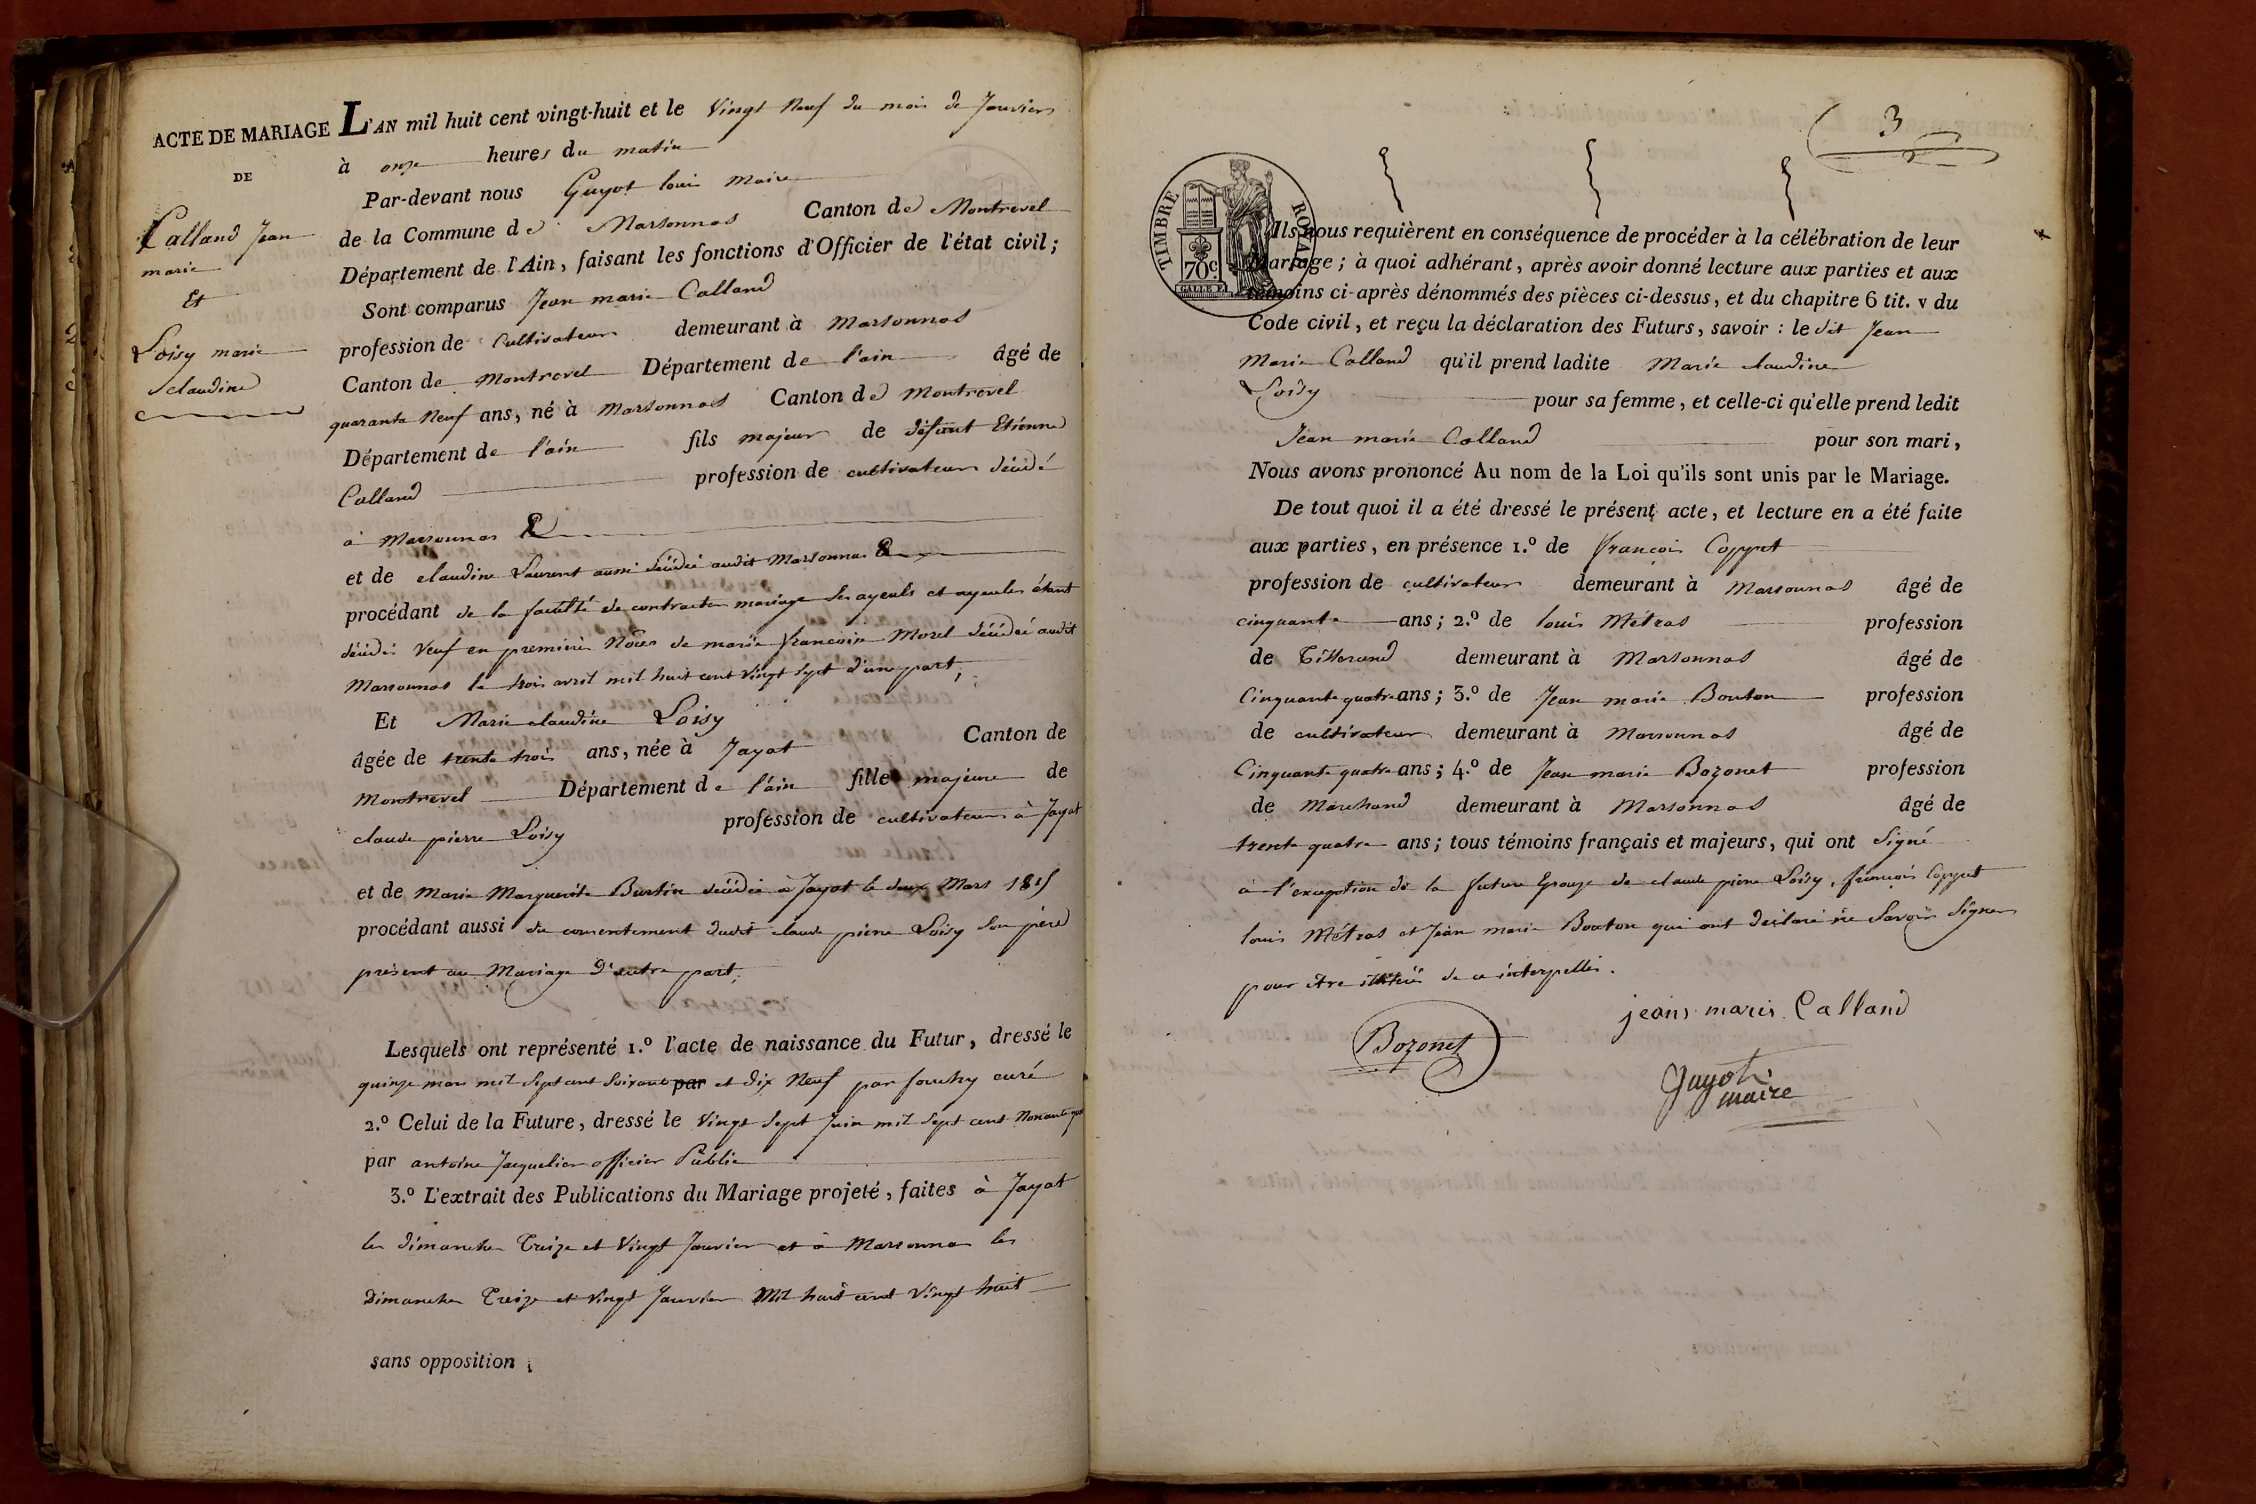 ACTE DE MARIAGE
DE
Calland Jean
marie
Et
Loisy marie
claudine
L'AN mil huit cent vingt-huit et le Vingt Neuf du mois de Janvier
à onze heures du matin
Par-devant nous Guyot louis Maire
de la Commune de Marsonnas Canton de Montrevel
Département de l'Ain, faisant les fonctions d'Officier de l'état civil;
Sont comparus Jean marie Calland
profession de Cultivateur demeurant à Marsonnas
Canton de Montrevel Département de l'ain âgé de
quarante Neuf ans, né à Marsonnas Canton de Montrevel
Département de l'ain fils majeur de défunt Etienne
Calland profession de cultivateur décédé
à Marsonnas
et de claudine Laurent aussi décédée audit Marsonnas
procédant de la faculté de contracter mariage ses ayeuls et ayeules étant
décédés Veuf en premières Nôces de marie francoise Morel décédée audit
Marsonnas le trois avril mil huit cent vingt sept d'une part;
Et Marie claudine Loisy
âgée de trente trois ans, née à Jayat Canton de
Montrevel Département de l'ain fille majeure de
claude pierre Loisy profession de cultivateur à Jayat
et de Marie Marguerite Burtin décédée à Jayat le deux Mars 1815
procédant aussi du consentement dudit claude pierre Loisy son père
présent au Mariage d'autre part;
Lesquels ont représenté 1.º l'acte de naissance du Futur, dressé le
quinze mars mil sept cent soixante par et dix Neuf par fouchy curé
2.º Celui de la Future, dressé le Vingt sept Juin mil sept cent Nonante
par antoine Jacquelier officier Public
3.º L'extrait des Publications du Mariage projeté, faites à Jayat
les dimanches Treize et Vingt Janvier et à Marsonnas les
Dimanches Treize et vingt Janvier Mil huit cent Vingt huit
sans opposition;
3
TIMBRE ROYAL
70c.
Ils nous requièrent en conséquence de procéder à la célébration de leur
Mariage; à quoi adhérant, après avoir donné lecture aux parties et aux
témoins ci-après dénommés des pièces ci-dessus, et du chapitre 6 tit. v du
Code civil, et reçu la déclaration des Futurs, savoir: le dit Jean
Marie Calland qu'il prend ladite Marie claudine
Loisy pour sa femme, et celle-ci qu'elle prend ledit
Jean marie Calland pour son mari,
Nous avons prononcé Au nom de la Loi qu'ils sont unis par le Mariage.
De tout quoi il a été dressé le présent acte, et lecture en a été faite
aux parties, en présence 1.º de françois Coppet
profession de cultivateur demeurant à Marsonnas âgé de
cinquante ans; 2.º de louis Métras profession
de Tisserand demeurant à Marsonnas âgé de
Cinquante quatre ans; 3.º de Jean marie Bouton profession
de cultivateur demeurant à Marsonnas âgé de
Cinquante quatre ans; 4.º de Jean marie Bozonet profession
de Marchand demeurant à Marsonnas âgé de
trente quatre ans; tous témoins français et majeurs, qui ont Signé
à l'exception de la future Epouse de claude pierre Loisy, francois Coppet
louis Métras et Jean marie Bouton qui ont déclaré ne Savoir Signer
pour être de ce interpellés.
jean marie Calland
Bozonet
Guyot
maire